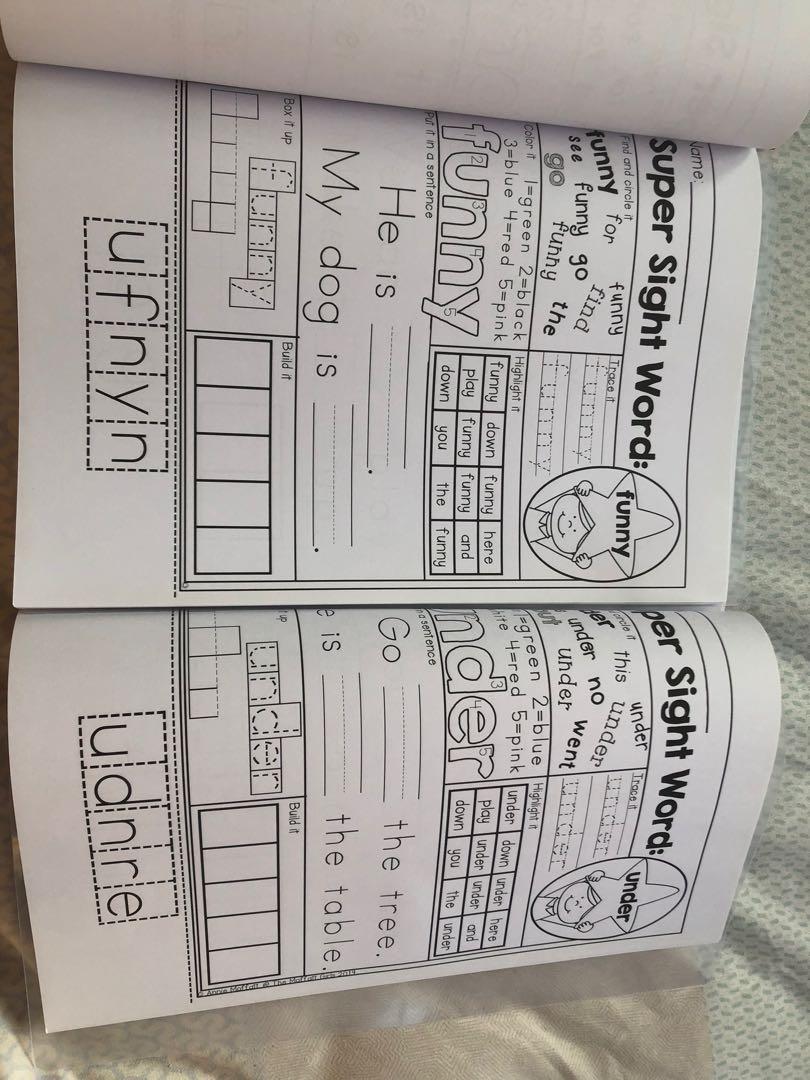 Name:
Super Sight Word:
funny
Find and circle it
funny for funny
see funny go find
go funny the
Trace it
funny
funny
Color it 1=green 2=black
3=blue 4=red 5=pink
funny
1 2 3 4 5
Highlight it
funny down funny here
play funny funny and
down you the funny
Put it in a sentence
He is .
My dog is .
Box it up
funny
Build it
u f n y n
per Sight Word:
under
circle it
this under
er under no under
out under went
Trace it
under
under
1=green 2=blue
hite 4=red 5=pink
nder
3 4 5
Highlight it
under down under here
play under under and
down you the under
n a sentence
Go the tree.
e is the table.
t up
under
Build it
© Annie Moffatt @ The Moffatt Girls 2014
u d n r e